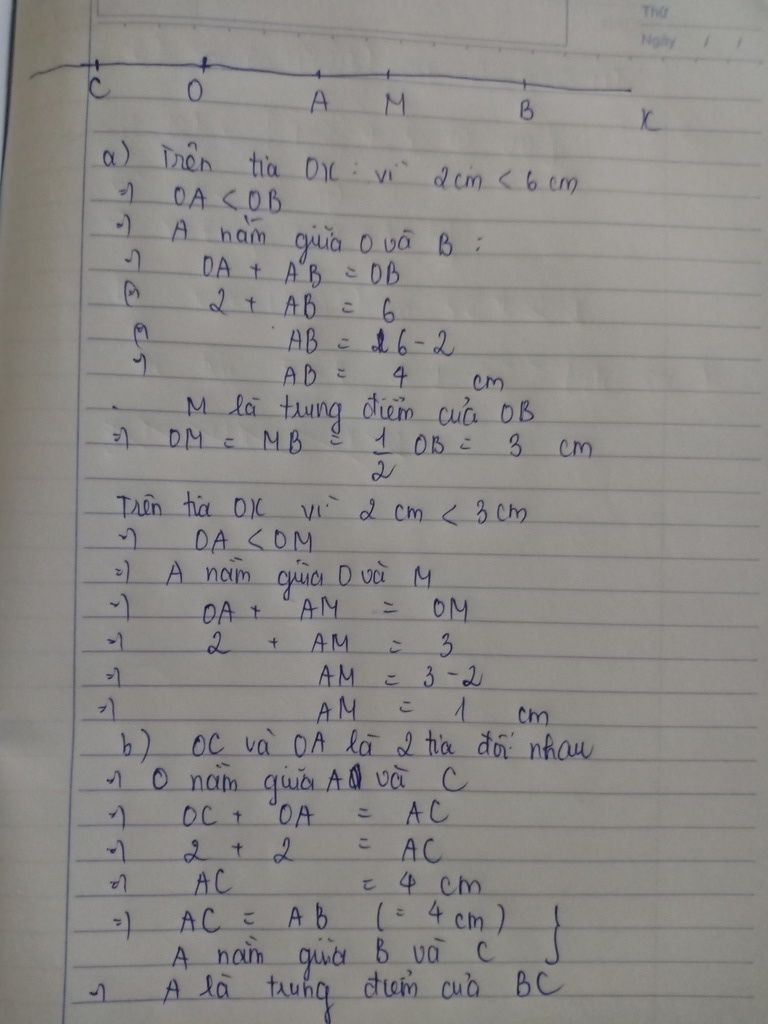 Thứ
Ngày / /
C O A M B x
a) Trên tia Ox : vì 2cm < 6 cm
=> OA < OB
=> A nằm giữa O và B :
=> OA + AB = OB
2 + AB = 6
AB = 6 - 2
=> AB = 4 cm
. M là trung điểm của OB
=> OM = MB = 1/2 OB = 3 cm
Trên tia Ox vì 2 cm < 3 cm
=> OA < OM
=> A nằm giữa O và M
=> OA + AM = OM
=> 2 + AM = 3
=> AM = 3 - 2
=> AM = 1 cm
b) OC và OA là 2 tia đối nhau
=> O nằm giữa A và C
=> OC + OA = AC
=> 2 + 2 = AC
=> AC = 4 cm
=> AC = AB (= 4 cm) }
A nằm giữa B và C
=> A là trung điểm của BC